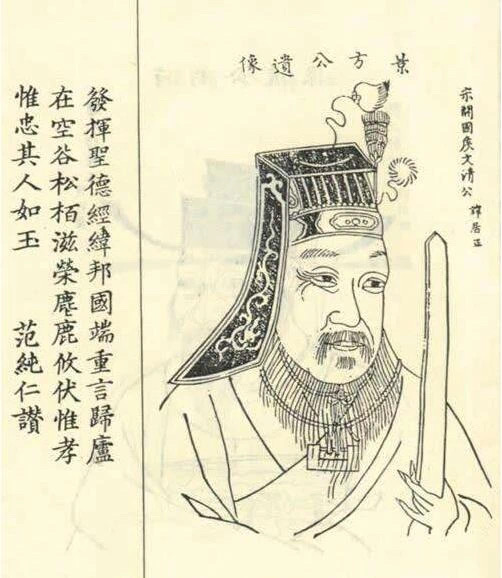 景方公遺像
宋開國侯文清公 諱居正
發揮聖德經緯邦國端重言歸廬
在空谷松栢滋榮麈鹿攸伏惟孝
惟忠其人如玉 范純仁讚